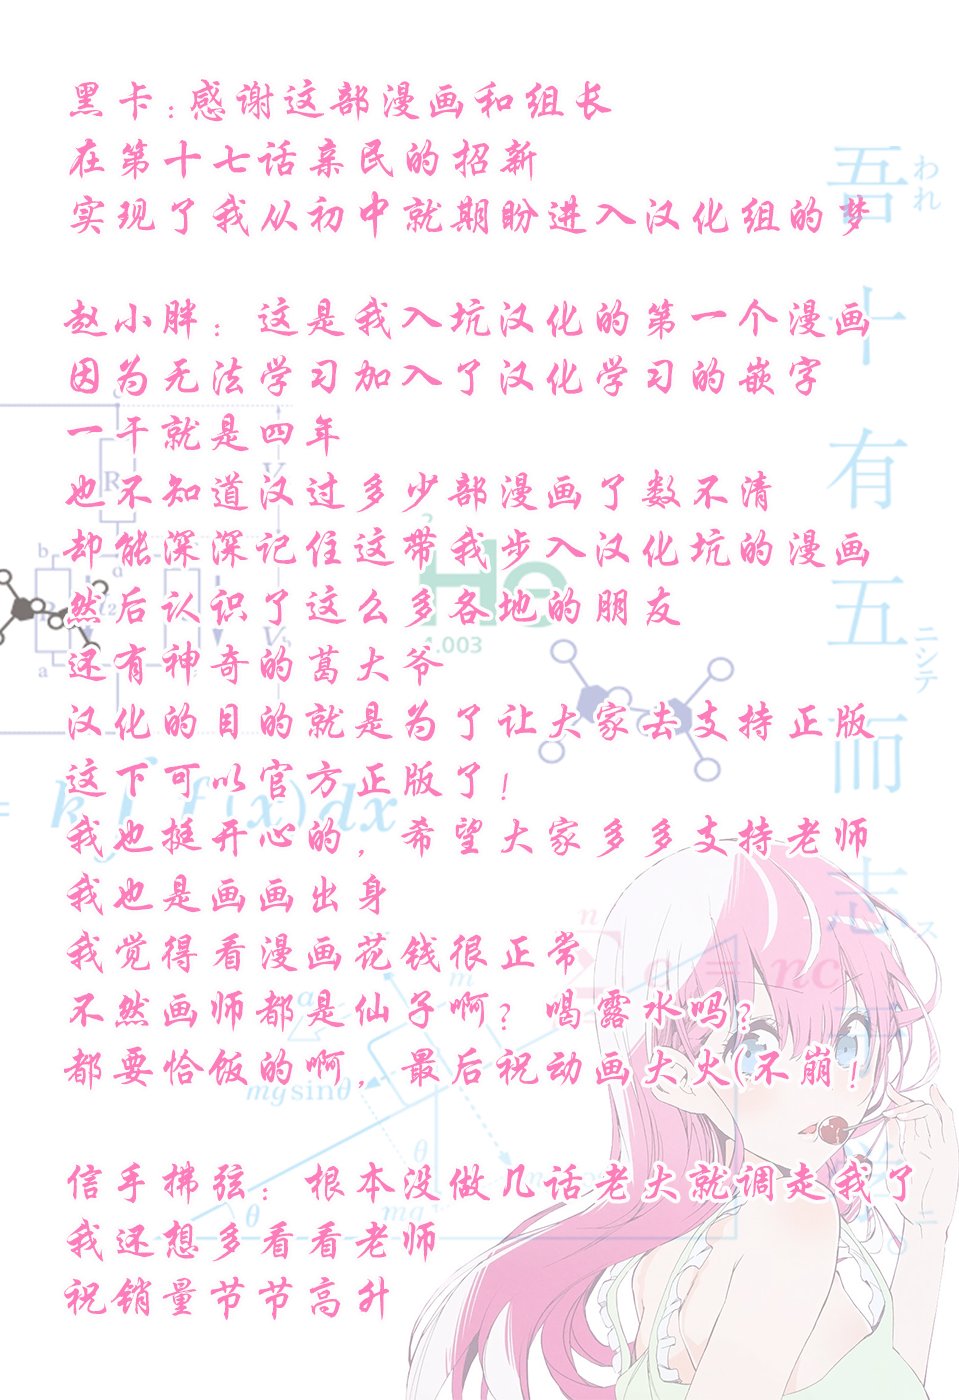 黑卡：感谢这部漫画和组长
在第十七话亲民的招新
实现了我从初中就期盼进入汉化组的梦
赵小胖：这是我入坑汉化的第一个漫画
因为无法学习加入了汉化学习的嵌字
一干就是四年
也不知道汉过多少部漫画了数不清
却能深深记住这带我步入汉化坑的漫画
然后认识了这么多各地的朋友
还有神奇的葛大爷
汉化的目的就是为了让大家去支持正版
这下可以官方正版了！
我也挺开心的，希望大家多多支持老师
我也是画画出身
我觉得看漫画花钱很正常
不然画师都是仙子啊？喝露水吗？
都要恰饭的啊，最后祝动画大火（不崩！
信手拂弦：根本没做几话老大就调走我了
我还想多看看老师
祝销量节节高升
吾十有五而志
われ
ニシテ
ス
ニ
He
4.003
R
V
b
a
= k∫f(x)dx
n
Σ
nc
m
a
mg sinθ
θ
θ
mg